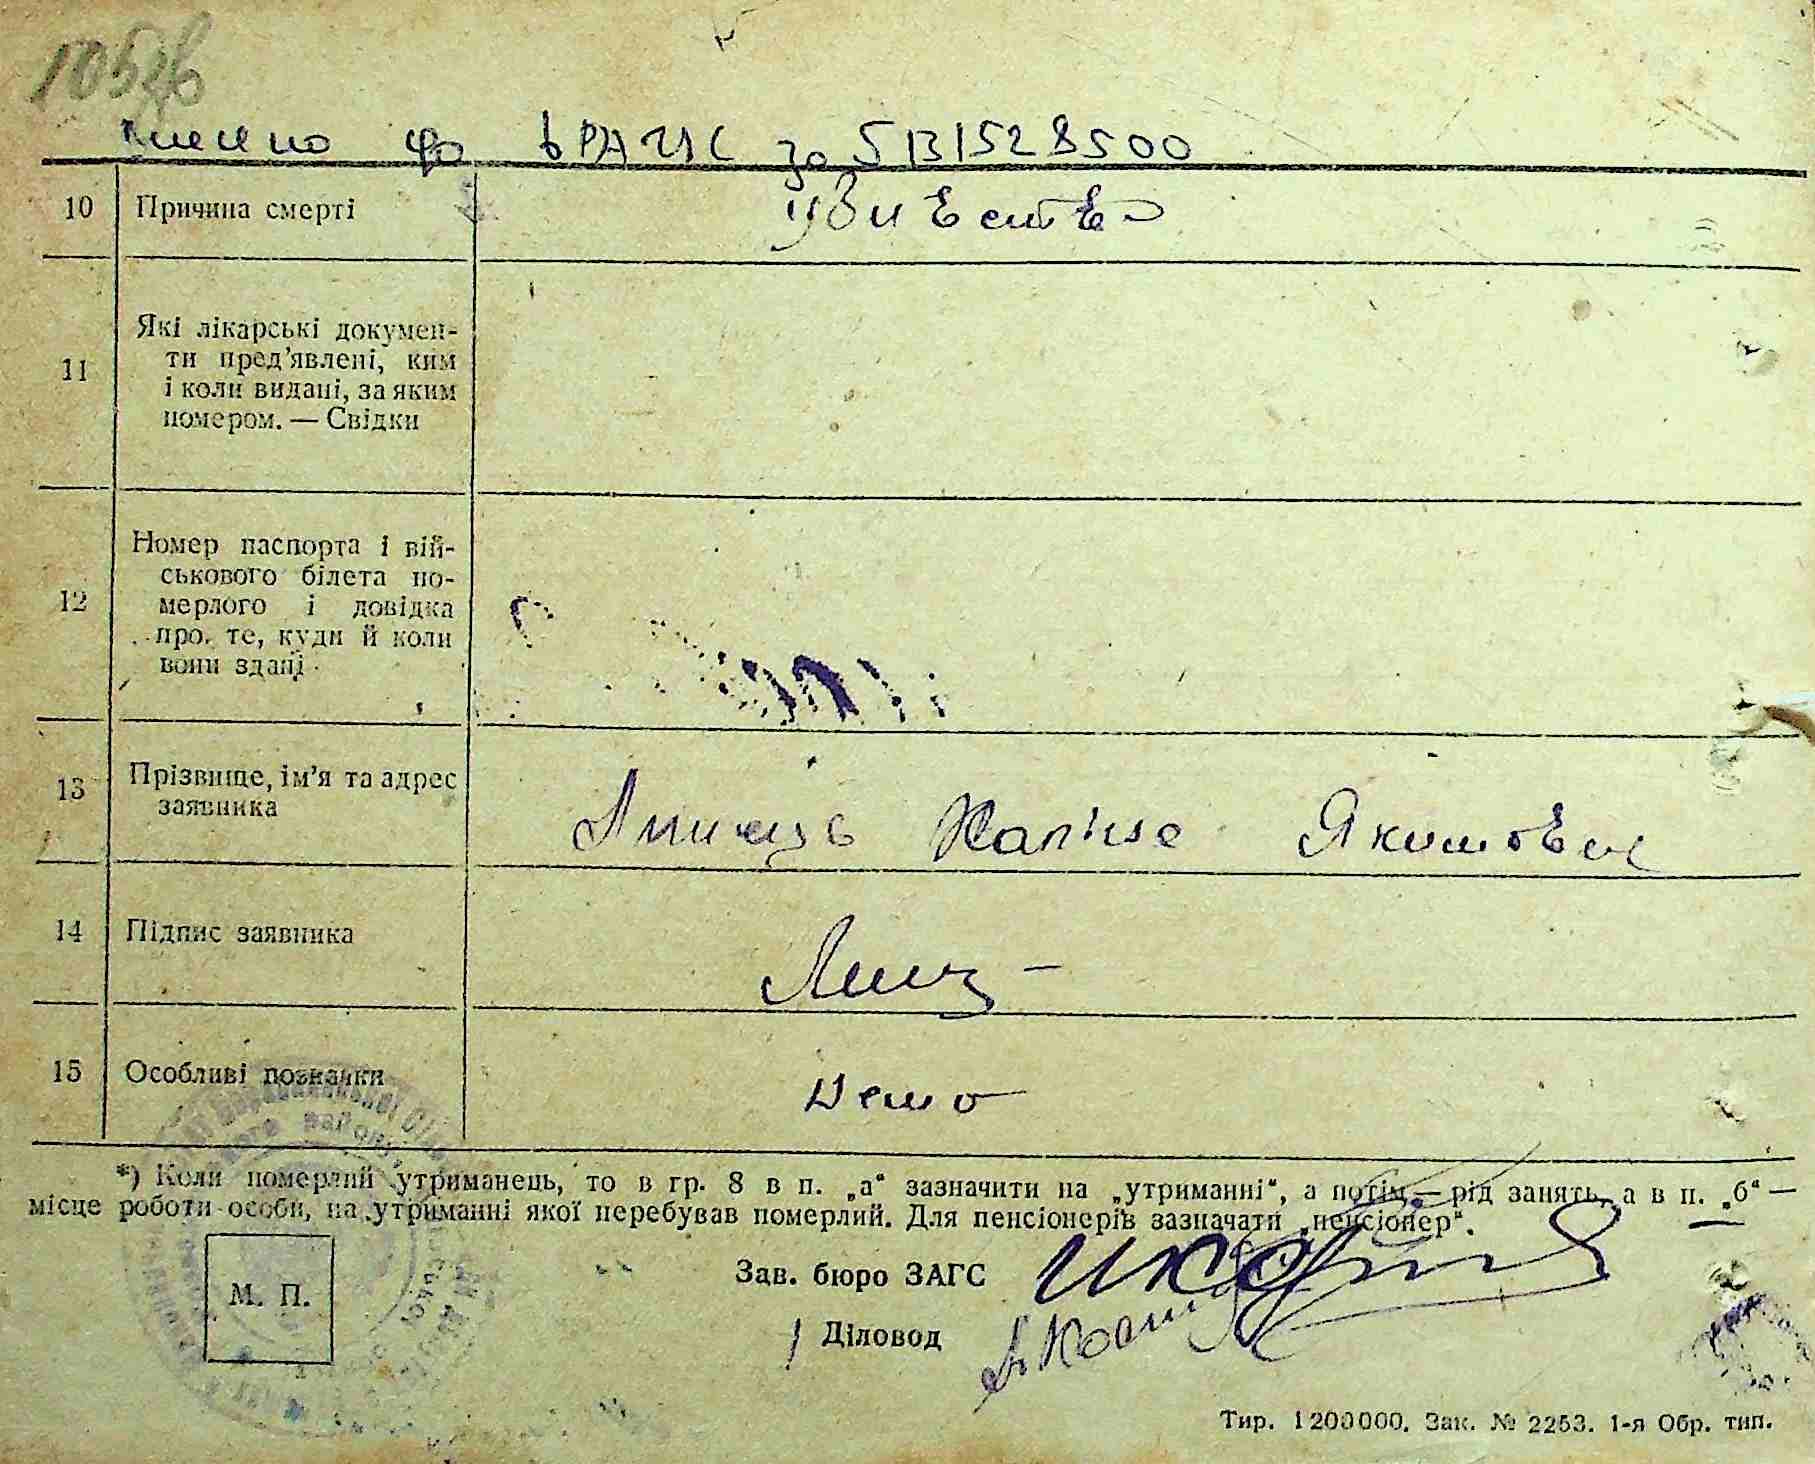 внесено до ДРАЦС за 5131528500
10 Причина смерті убивство
11 Які лікарські документи пред'явлені, ким
і коли видані, за яким
номером. — Свідки
12 Номер паспорта і військового білета померлого і довідка
про те, куди й коли
вони здані
13 Прізвище, ім'я та адрес
заявника Якимович
14 Підпис заявника
15 Особливі позначки нема
*) Коли померлий утриманець, то в гр. 8 в п. „а“ зазначити на „утриманні“, а потім — рід занять, а в п. „б“ —
місце роботи особи, на утриманні якої перебував померлий. Для пенсіонерів зазначати „пенсіонер“.
М. П.
Зав. бюро ЗАГС
Діловод
Тир. 1200000. Зак. № 2253. 1-я Обр. тип.